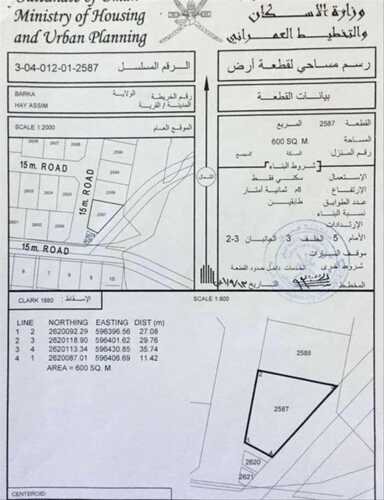 Sultanate of Oman
Ministry of Housing
and Urban Planning
وزارة الإسكان
والتخطيط العمراني
3-04-012-01-2587
الرقم المسلسل
رسم مساحي لقطعة أرض
BARKA
الولاية
HAY ASSIM
المدينة / القرية
رقم الخريطة
بيانات القطعة
SCALE 1:2000
الموقع العام
القطعة 2587 المربع
المساحة 600 SQ. M.
رقم المنزل السكة المجمع
شروط البناء
الاستعمال سكني فقط
الارتفاع ثمانية أمتار
عدد الطوابق طابقين
نسبة البناء
الإرتدادات
الأمام 5 الخلف 3 الجانبان 3-2
موقف السيارات
شروط أخرى الخدمات داخل حدود القطعة
المخطط
التاريخ
15m. ROAD
15m. ROAD
15m. ROAD
2587
الشمال
CLARK 1880
الإسقاط
SCALE 1:600
LINE NORTHING EASTING DIST (m)
1 2 2620092.29 596396.56 27.08
2 3 2620118.90 596401.62 29.76
3 4 2620113.34 596430.85 35.74
4 1 2620087.01 596406.69 11.42
AREA = 600 SQ. M.
2588
2587
2620
2621
CENTEROID